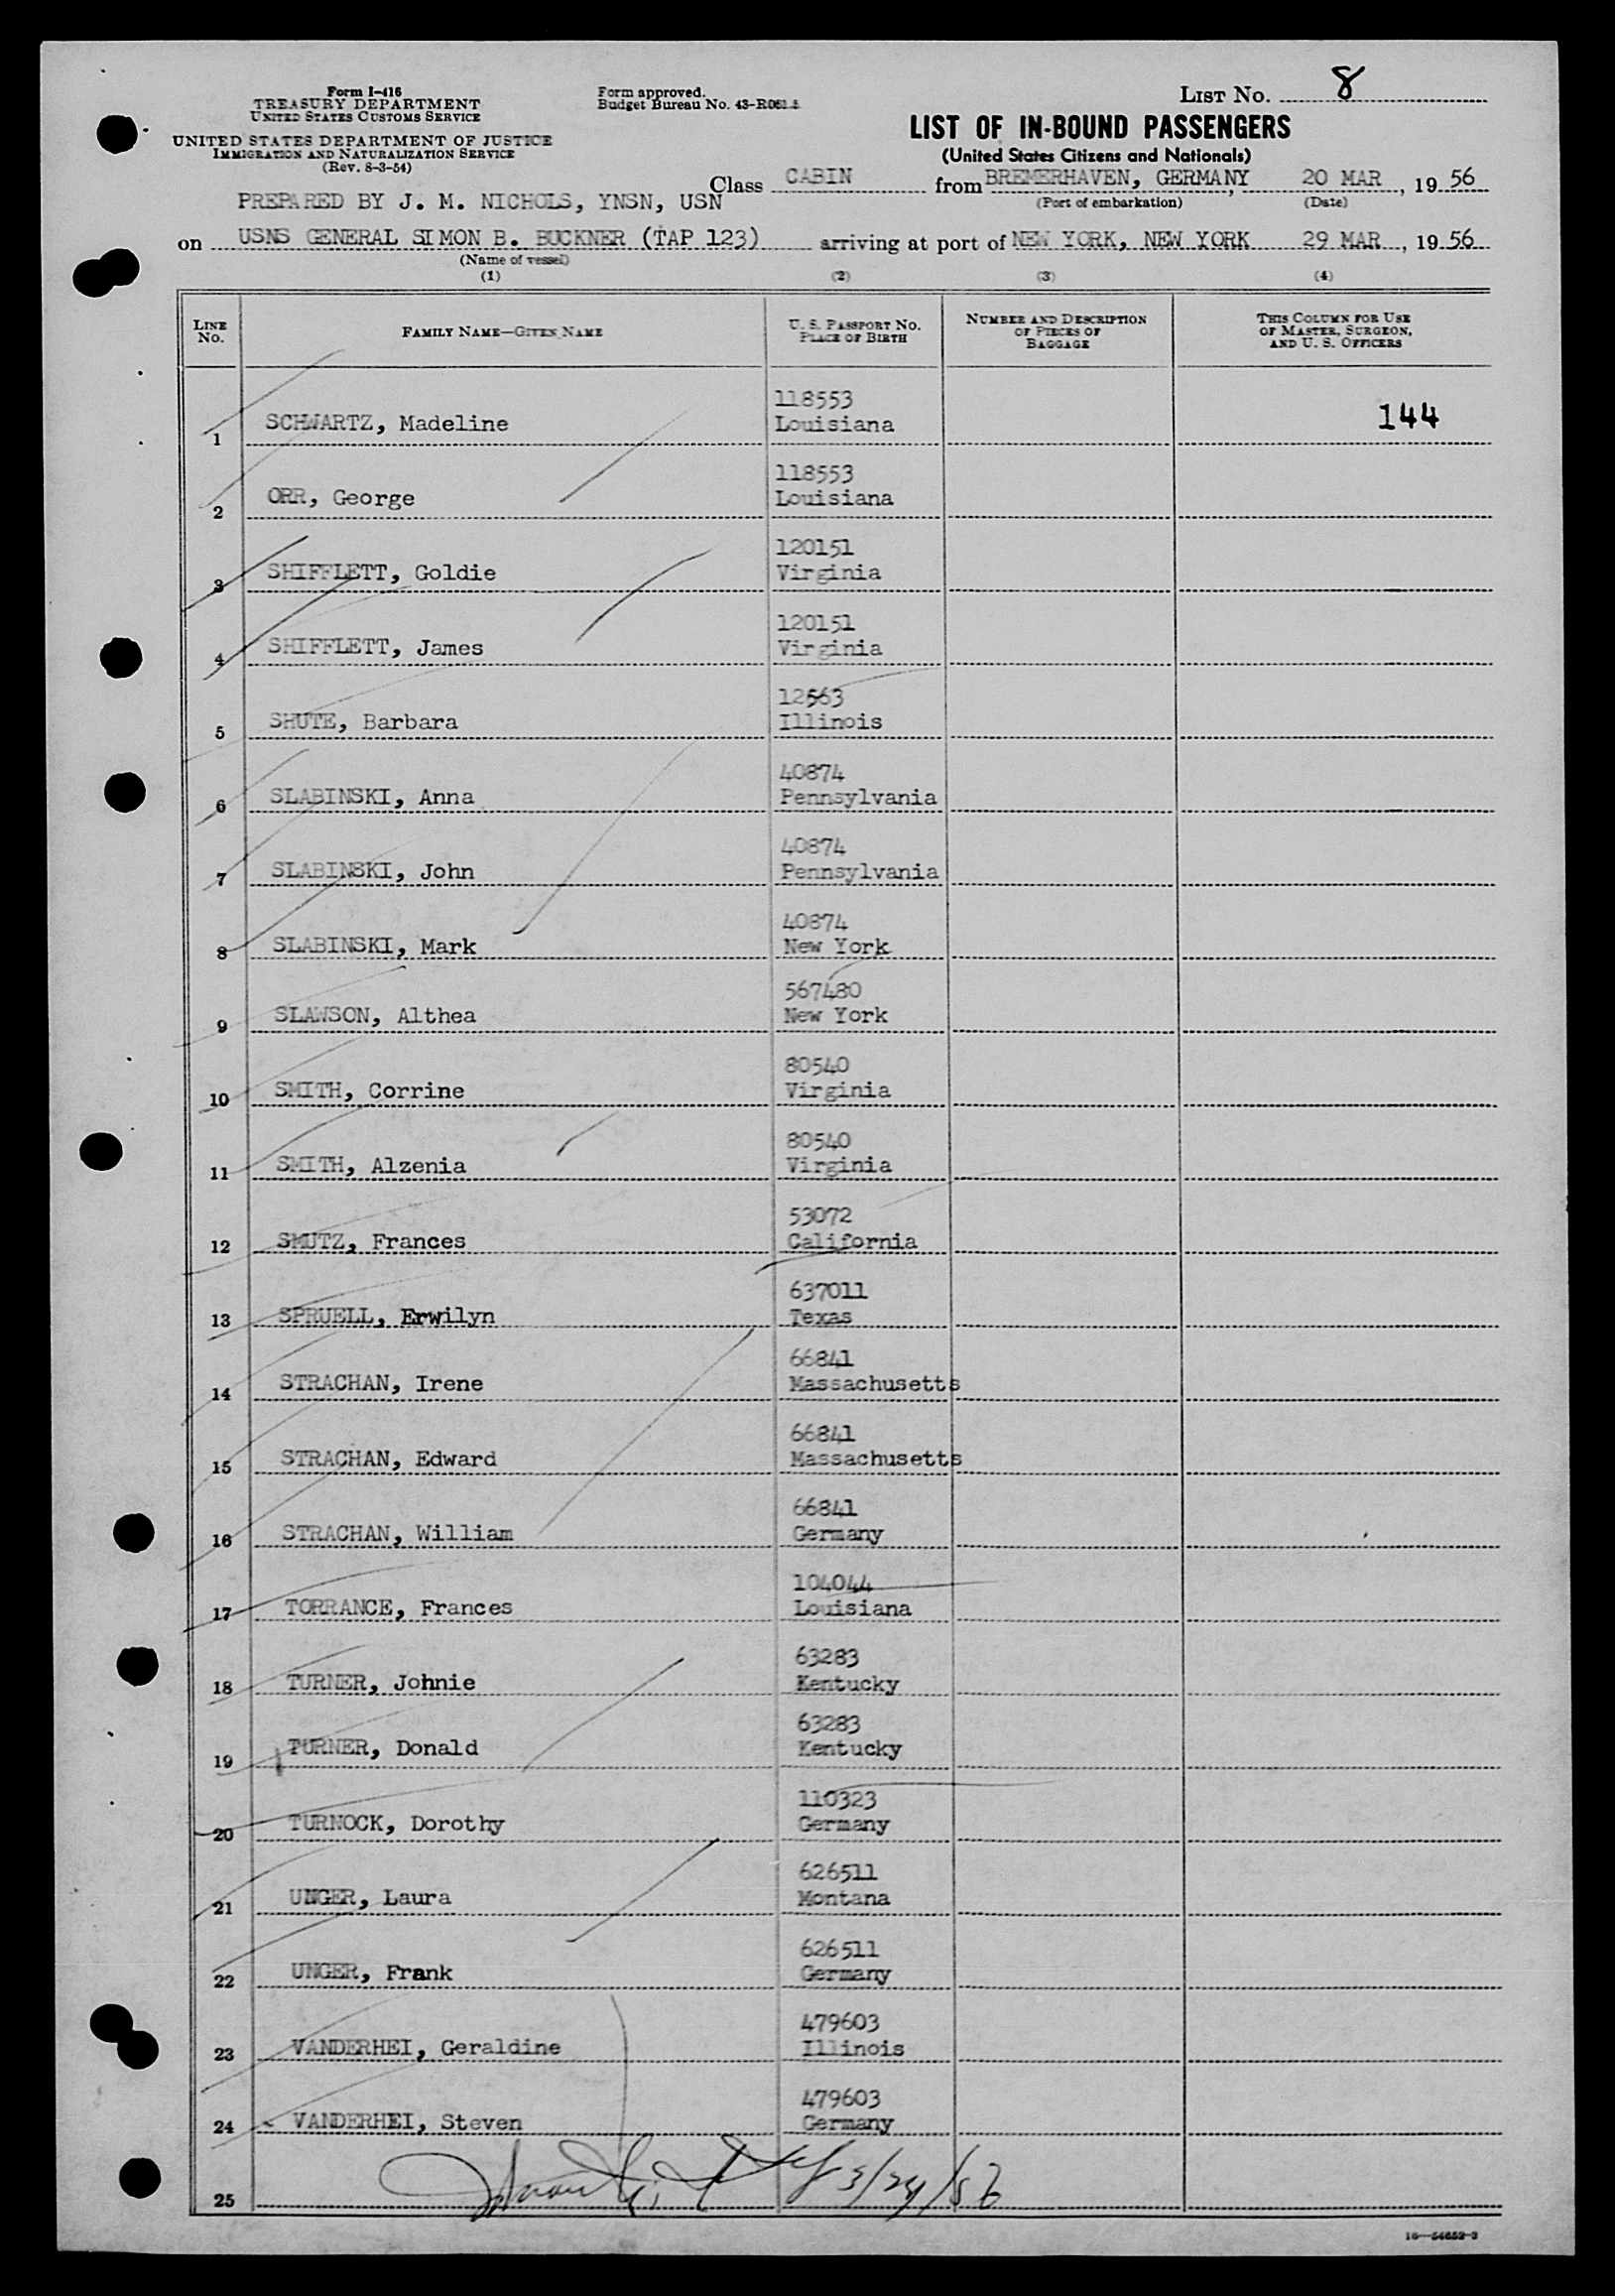 Form I-416
TREASURY DEPARTMENT
UNITED STATES CUSTOMS SERVICE
UNITED STATES DEPARTMENT OF JUSTICE
IMMIGRATION AND NATURALIZATION SERVICE
(Rev. 8-3-54)
Form approved.
Budget Bureau No.
LIST No. 8
LIST OF IN-BOUND PASSENGERS
(United States Citizens and Nationals)
Class CABIN from BREMERHAVEN, GERMANY, 20 MAR, 19 56
(Port of embarkation) (Date)
PREPARED BY J. M. NICHOLS, YNSN, USN
on USNS GENERAL SIMON B. BUCKNER (TAP 123) arriving at port of NEW YORK, NEW YORK 29 MAR, 19 56
(Name of vessel)
(1) (2) (3) (4)
LINE No. FAMILY NAME—GIVEN NAME U. S. PASSPORT No. PLACE OF BIRTH NUMBER AND DESCRIPTION OF PIECES OF BAGGAGE THIS COLUMN FOR USE OF MASTER, SURGEON, AND U. S. OFFICERS
118553
1 SCHWARTZ, Madeline Louisiana 144
118553
2 ORR, George Louisiana
120151
3 SHIFFLETT, Goldie Virginia
120151
4 SHIFFLETT, James Virginia
12563
5 SHUTE, Barbara Illinois
40874
6 SLABINSKI, Anna Pennsylvania
40874
7 SLABINSKI, John Pennsylvania
40874
8 SLABINSKI, Mark New York
567480
9 SLAWSON, Althea New York
80540
10 SMITH, Corrine Virginia
80540
11 SMITH, Alzenia Virginia
53072
12 SMUTZ, Frances California
637011
13 SPRUELL, Erwilyn Texas
66841
14 STRACHAN, Irene Massachusetts
66841
15 STRACHAN, Edward Massachusetts
66841
16 STRACHAN, William Germany
104044
17 TORRANCE, Frances Louisiana
63283
18 TURNER, Johnie Kentucky
63283
19 TURNER, Donald Kentucky
110323
20 TURNOCK, Dorothy Germany
626511
21 UNGER, Laura Montana
626511
22 UNGER, Frank Germany
479603
23 VANDERHEI, Geraldine Illinois
479603
24 VANDERHEI, Steven Germany
25